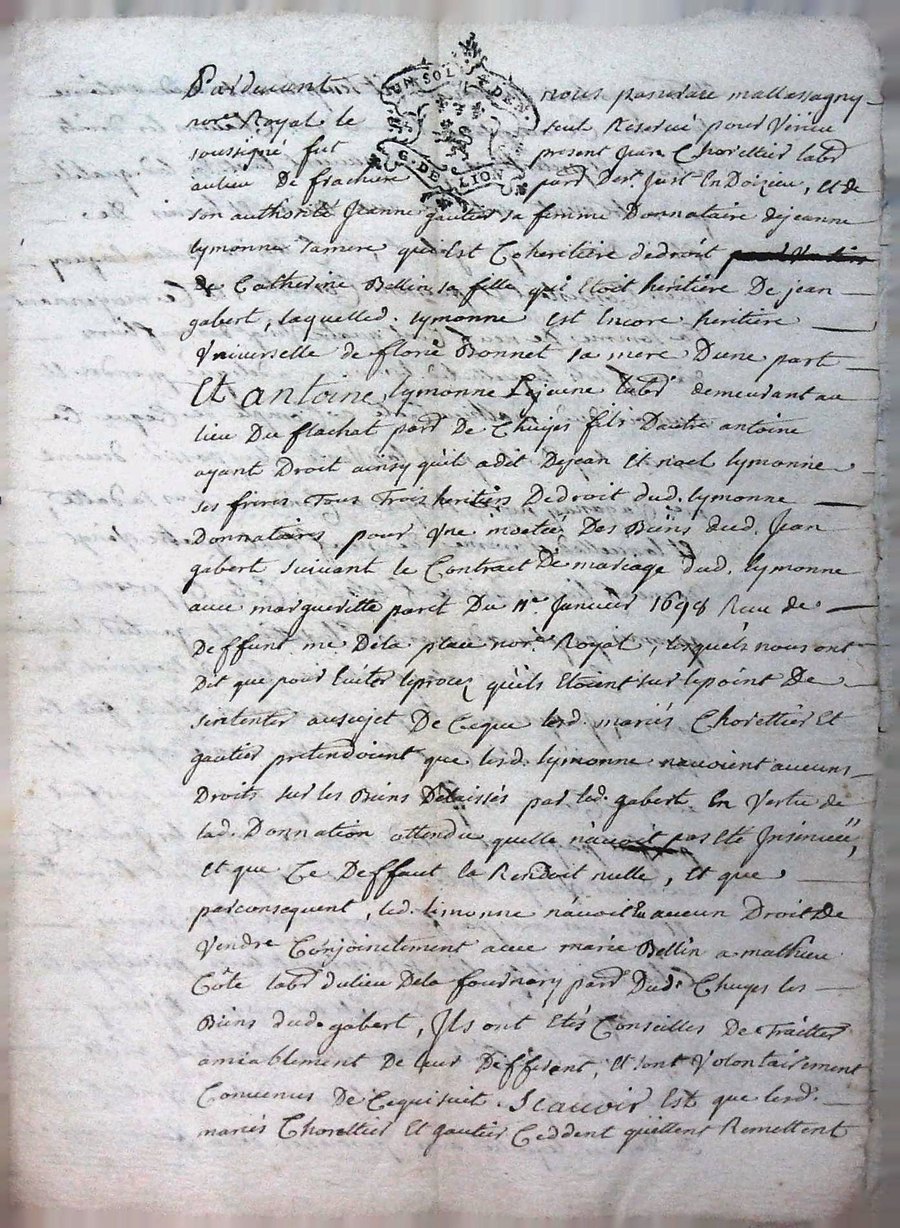 UN SOL 4 DEN.
G. DE LION
Pardevant nous
not.re Royal le seul Reservé pour Virieu
soussigné fut present Jean Chorettier lab.r
aulieu De frachure parr.e De st. Just En Doizieu, et de
son authorité Jeanne gautier sa femme Donnataire dejeanne
lymonne samere, qui Est Coheritiere dedroit
de Catherine Bellin sa fille qui Etoit heritiere De jean
gabert, laquelled. lymonne est Encore heritiere
Vniverselle de florie Bonnet sa mere Dune part
Et antoine lymonne Lejeune lab.r demeurant au
lieu Du flachat parr.e De Chuyes fils Dautre antoine
ayant Droit ainsy quil adit Dejean Et noel lymonne
ses freres Tous Trois heritiers Dedroit dud. lymonne
Donnataires pour Vne moetié Des Biens dud. Jean
gabert suivant le Contrait De mariage dud. lymonne
avec margueritte paret Du 11e Janvier 1698 Recu de
Deffunt me Dela place not.re Royal, lesquels nous ont
Dit que pour Eviter leprocez quils Etoient sur lepoint De
sintenter ausujet De Ceque lesd. mariés Chorettier Et
gautier pretendoient que lesd. lymonne navoient aucuns
Droits sur les Biens Delaissés par led. gabert En Vertu de
lad. Donnation attendu quelle n'avoit pas Eté Insinuée,
Et que Ce Deffaut la Rendoit nulle, Et que
parconsequent, led. limonne navoit Eu aucun Droit De
Vendre Conjoinctement avec marie Bellin a mathieu
Côte lab.r dulieu Dela fournary parr.e Dud. Chuyes les
Biens dud. gabert, Ils ont Etés Conseilles De Traitter
amiablement De leur Differant, Et sont Volontairement
Convenus De Cequisuit. Scavoir Est que lesd.
mariés Chorettier Et gautier Ceddent quittent Remettent